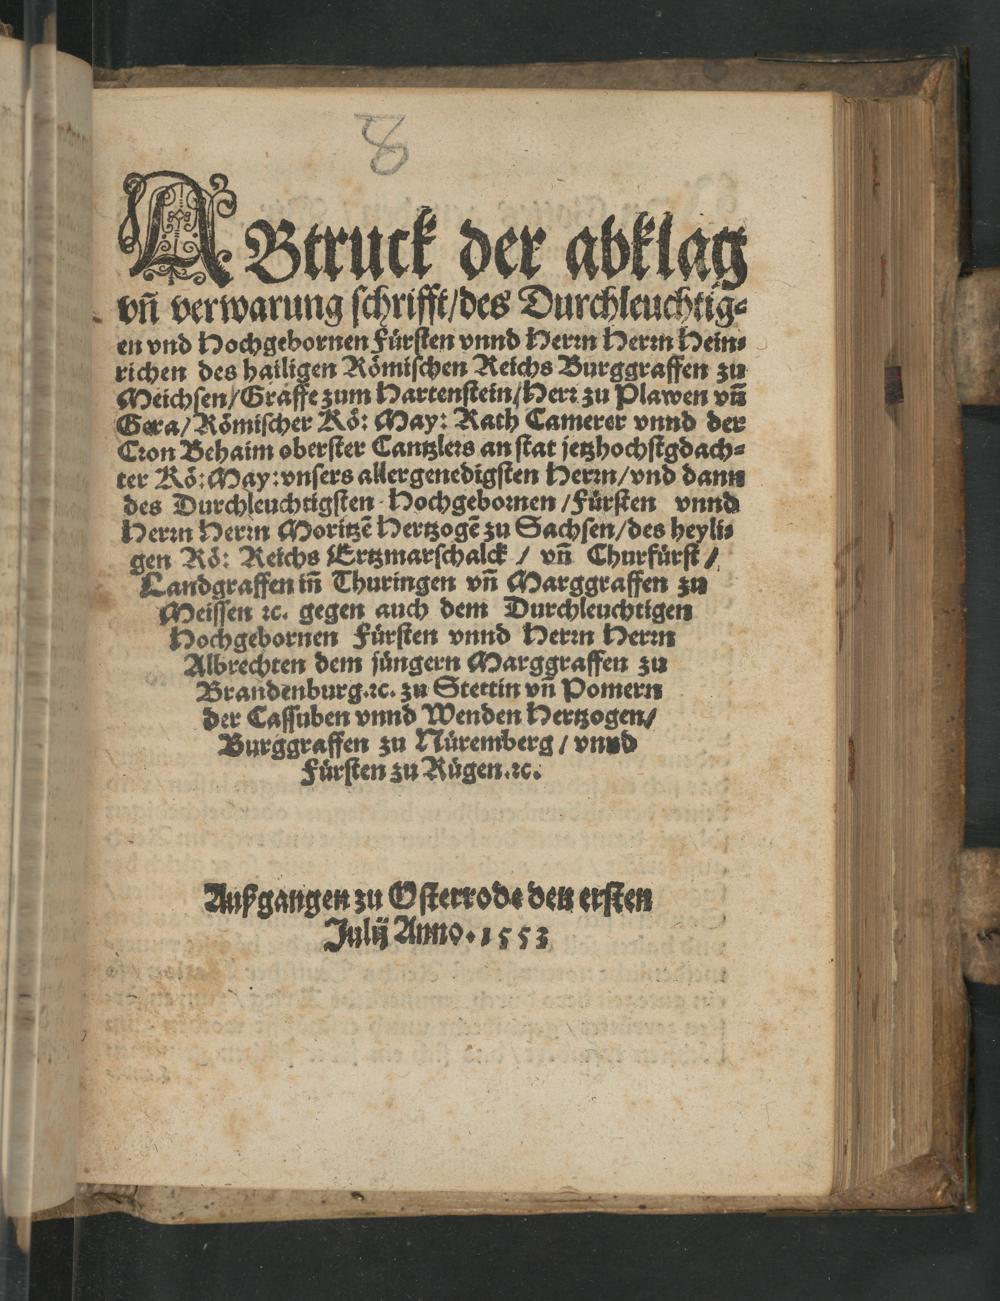 8
ABtruck der abklag
vñ verwarung schrifft/des Durchleuchtig=
en vnd Hochgebornen Fürsten vnnd Herrn Herrn Hein=
richen des hailigen Römischen Reichs Burggraffen zu
Meichsen/Graffe zum Hartenstein/Herr zu Plawen vñ
Gera/Römischer Rö: May: Rath Camerer vnnd der
Cron Behaim oberster Cantzlers an stat jetzhochstgdach=
ter Rö:May:vnsers allergenedigsten Herrn/vnd dann
des Durchleuchtigsten Hochgebornen/Fürsten vnnd
Herrn Herrn Moritzẽ Hertzogẽ zu Sachsen/des heyli=
gen Rö: Reichs Ertzmarschalck / vñ Churfürst /
Landgraffen iñ Thuringen vñ Marggraffen zu
Meissen ꝛc. gegen auch dem Durchleuchtigen
Hochgebornen Fürsten vnnd Herrn Herrn
Albrechten dem jüngern Marggraffen zu
Brandenburg.ꝛc. zu Stettin vñ Pomern
der Cassuben vnnd Wenden Hertzogen/
Burggraffen zu Nüremberg / vnnd
Fürsten zu Rügen.ꝛc.
Außgangen zu Osterrode den ersten
Julij Anno. 1553